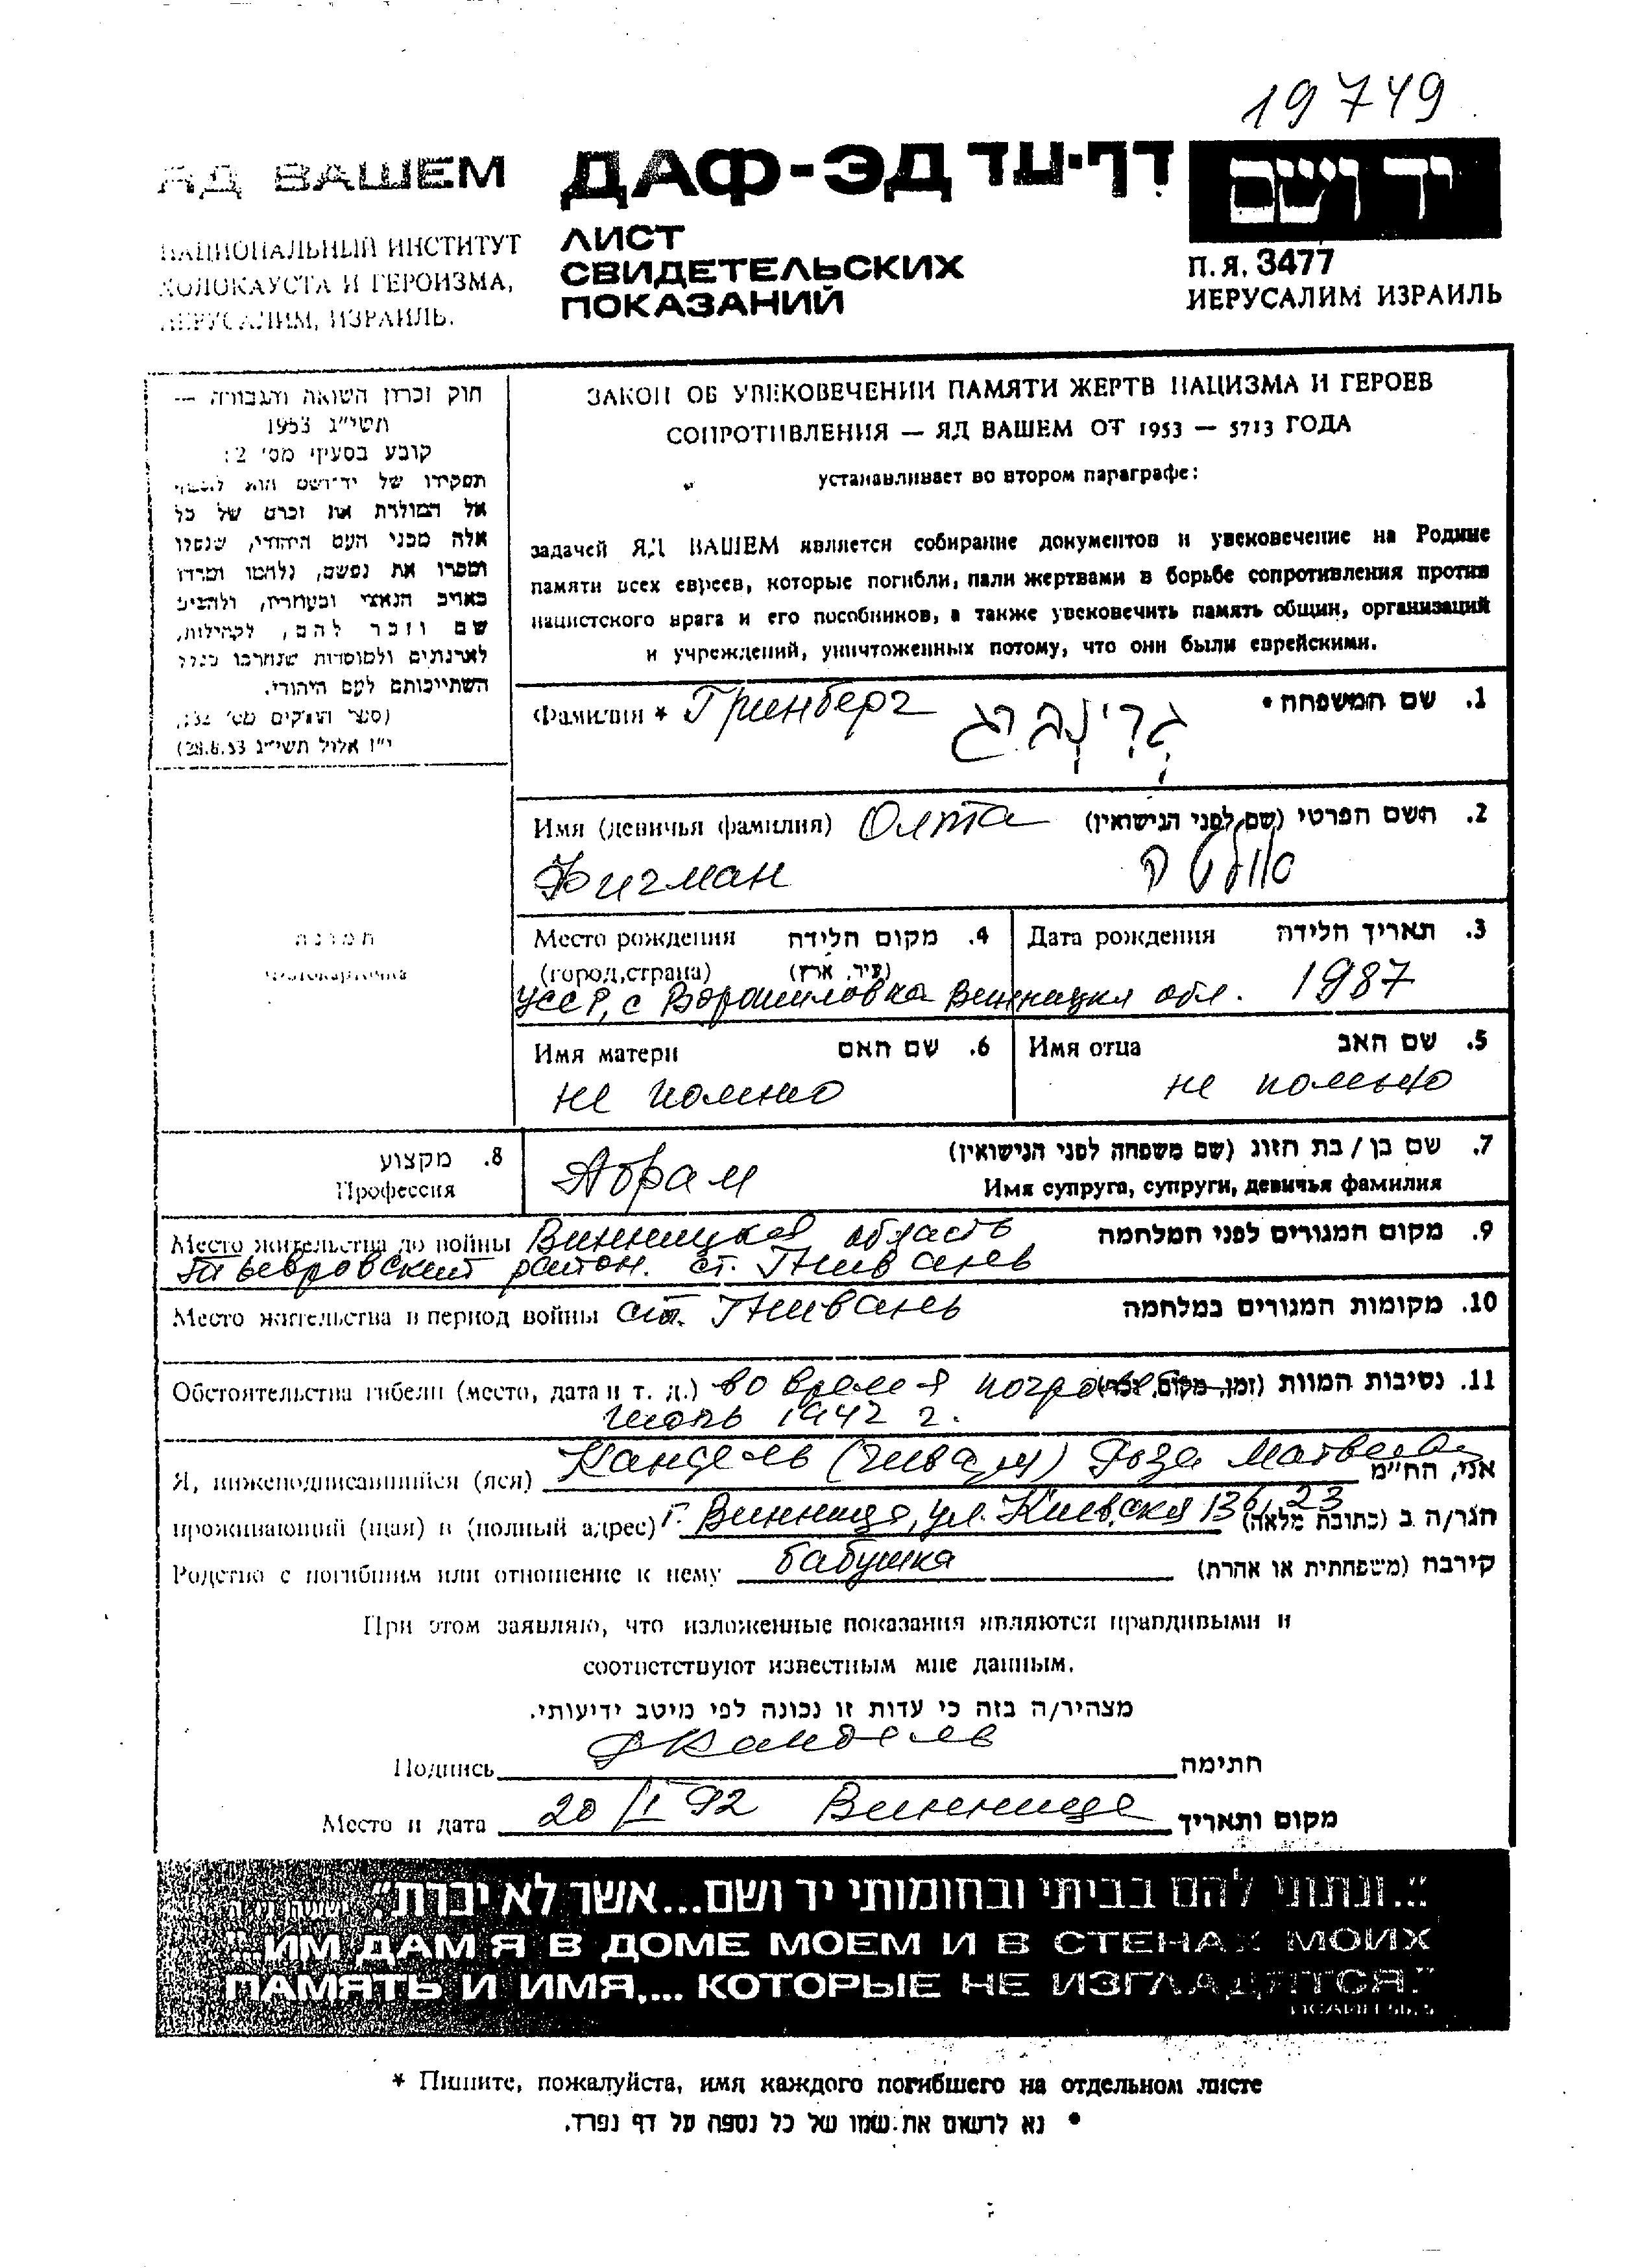 19749
ЯД ВАШЕМ
ДАФ-ЭД דף-עד
יד ושם
НАЦИОНАЛЬНЫЙ ИНСТИТУТ
ХОЛОКАУСТА И ГЕРОИЗМА,
ИЕРУСАЛИМ, ИЗРАИЛЬ.
ЛИСТ
СВИДЕТЕЛЬСКИХ
ПОКАЗАНИЙ
П.Я. 3477
ИЕРУСАЛИМ ИЗРАИЛЬ
חוק זכרון השואה והגבורה —
תשי"ג 1953
קובע בסעיף מס' 2:
תפקידו של יד-ושם הוא לאסוף
אל המולדת את זכרם של כל
אלה מבני העם היהודי, שנפלו
ומסרו את נפשם, נלחמו ומרדו
באויב הנאצי ובעוזריו, ולהציב
שם וזכר להם, לקהילות,
לארגונים ולמוסדות שנחרבו בגלל
השתייכותם לעם היהודי.
(ספר החוקים מס' 132,
י"ז אלול תשי"ג 28.8.53)
ЗАКОН ОБ УВЕКОВЕЧЕНИИ ПАМЯТИ ЖЕРТВ НАЦИЗМА И ГЕРОЕВ
СОПРОТИВЛЕНИЯ — ЯД ВАШЕМ ОТ 1953 — 5713 ГОДА
устанавливает во втором параграфе:
задачей ЯД ВАШЕМ является собирание документов и увековечение на Родине
памяти всех евреев, которые погибли, пали жертвами в борьбе сопротивления против
нацистского врага и его пособников, а также увековечить память общин, организаций
и учреждений, уничтоженных потому, что они были еврейскими.
Фамилия * Гринберг גרינברג 1. שם המשפחה •
2. השם הפרטי (שם לפני הנישואין) Имя (девичья фамилия) Олта
Фигман
תמונה
фотокарточка
Место рождения 4. מקום הלידה
(город,страна) (עיר, ארץ)
УССР, с Ворошиловка Винницкая обл.
Дата рождения 3. תאריך הלידה
1987
Имя матери 6. שם האם
не помню
Имя отца 5. שם האב
не помню
8. מקצוע
Профессия
7. שם בן / בת הזוג (שם משפחה לפני הנישואין)
Абрам Имя супруга, супруги, девичья фамилия
Место жительства до войны Винницкая область 9. מקום המגורים לפני המלחמה
район. ст. Гнивань
Место жительства в период войны ст. Гнивань 10. מקומות המגורים במלחמה
Обстоятельства гибели (место, дата и т. д.) во время 11. נסיבות המוות (זמן, מקום, וכו')
июль 1942 г.
Я, нижеподписавшийся (яся) Кандель Роза אני, הח"מ
проживающий (щая) в (полный адрес) г. Винница, ул. Киевская 136, 23 הגר/ה ב (כתובת מלאה)
Родство с погибшим или отношение к нему бабушка קירבה (משפחתית או אחרת)
При этом заявляю, что изложенные показания являются правдивыми и
соответствуют известным мне данным.
מצהיר/ה בזה כי עדות זו נכונה לפי מיטב ידיעותי.
Подпись РКандель חתימה
Место и дата 20/I 92 Винница מקום ותאריך
"...ונתתי להם בביתי ובחומותי יד ושם...אשר לא יכרת". ישעיהו נו, ה
"...ИМ ДАМ Я В ДОМЕ МОЕМ И В СТЕНАХ МОИХ
ПАМЯТЬ И ИМЯ,... КОТОРЫЕ НЕ ИЗГЛАДЯТСЯ."
ИСАЙЯ 56, 5
* Пишите, пожалуйста, имя каждого погибшего на отдельном листе
• נא לרשום את שמו של כל נספה על דף נפרד.